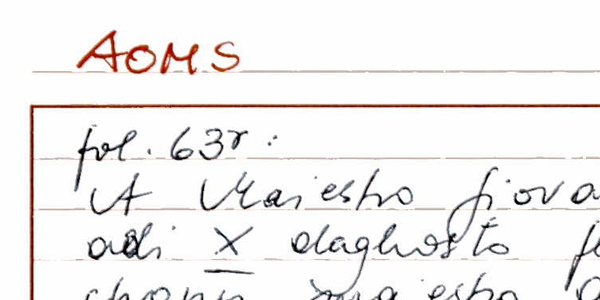 AOMS
fol. 63r:
A Maiestro giova
adi X daghosto
maiestro